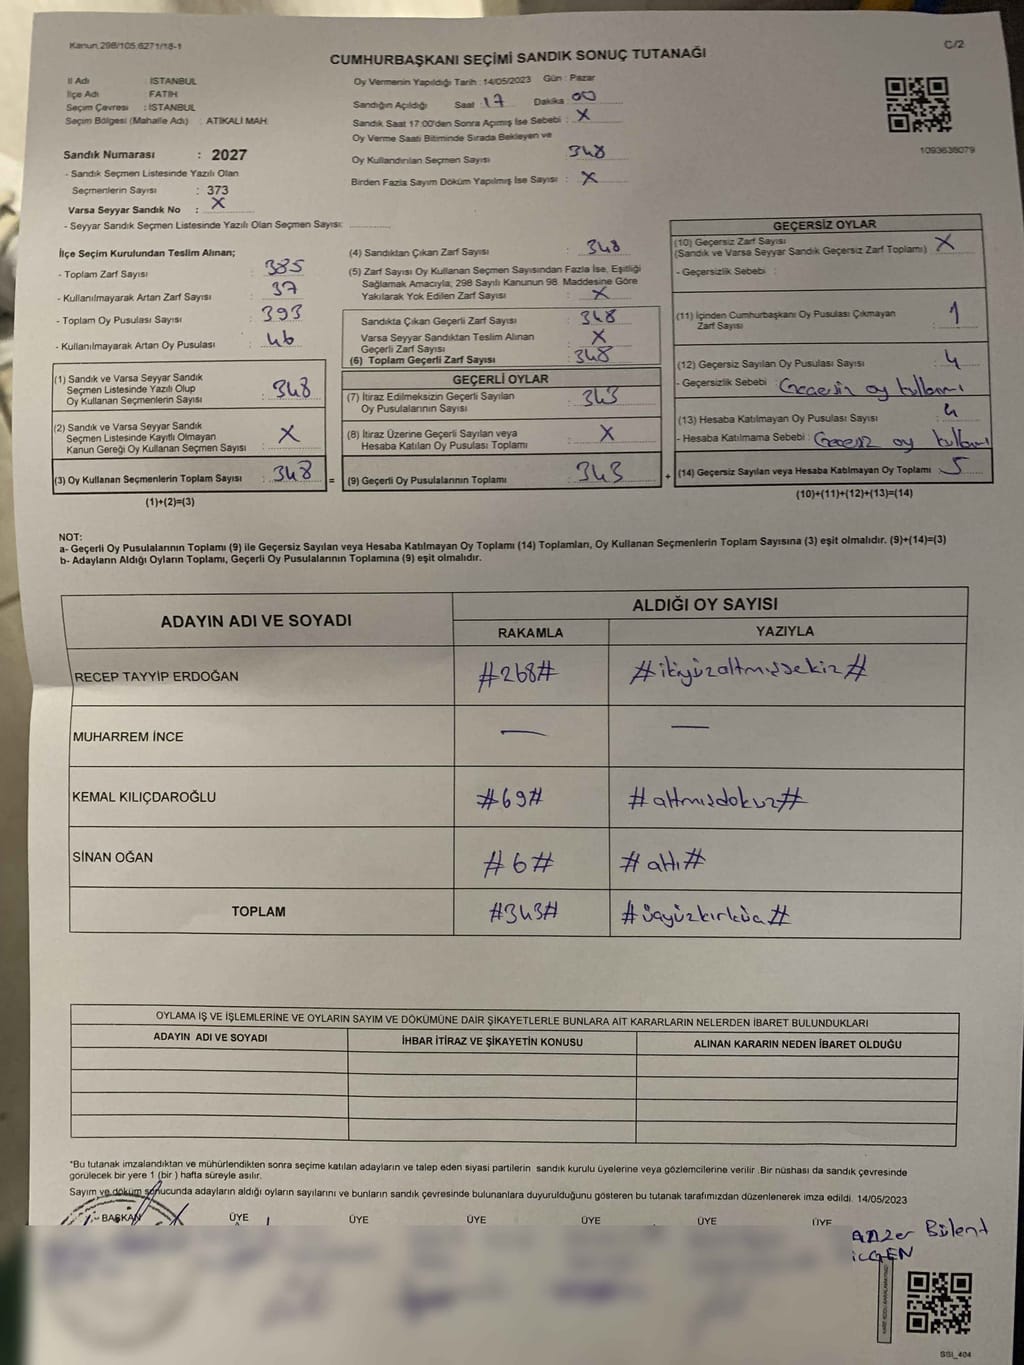 Kanun 298/105;6271/18-1
C/2
CUMHURBAŞKANI SEÇİMİ SANDIK SONUÇ TUTANAĞI
İl Adı : İSTANBUL
İlçe Adı : FATİH
Seçim Çevresi : İSTANBUL
Seçim Bölgesi (Mahalle Adı) : ATİKALİ MAH.
Oy Vermenin Yapıldığı Tarih : 14/05/2023 Gün : Pazar
Sandığın Açıldığı Saat 17 Dakika 00
Sandık Saat 17:00'den Sonra Açımış İse Sebebi : X
Oy Verme Saati Bitiminde Sırada Bekleyen ve
Oy Kullandırılan Seçmen Sayısı 348
Birden Fazla Sayım Döküm Yapılmış İse Sayısı : X
1093638079
Sandık Numarası : 2027
- Sandık Seçmen Listesinde Yazılı Olan
Seçmenlerin Sayısı : 373
Varsa Seyyar Sandık No : X
- Seyyar Sandık Seçmen Listesinde Yazılı Olan Seçmen Sayısı:
İlçe Seçim Kurulundan Teslim Alınan;
- Toplam Zarf Sayısı : 385
- Kullanılmayarak Artan Zarf Sayısı : 37
- Toplam Oy Pusulası Sayısı : 393
- Kullanılmayarak Artan Oy Pusulası : 46
(1) Sandık ve Varsa Seyyar Sandık
Seçmen Listesinde Yazılı Olup
Oy Kullanan Seçmenlerin Sayısı : 348
(2) Sandık ve Varsa Seyyar Sandık
Seçmen Listesinde Kayıtlı Olmayan
Kanun Gereği Oy Kullanan Seçmen Sayısı : X
(3) Oy Kullanan Seçmenlerin Toplam Sayısı : 348 =
(1)+(2)=(3)
(4) Sandıktan Çıkan Zarf Sayısı : 348
(5) Zarf Sayısı Oy Kullanan Seçmen Sayısından Fazla İse, Eşitliği
Sağlamak Amacıyla; 298 Sayılı Kanunun 98. Maddesine Göre
Yakılarak Yok Edilen Zarf Sayısı : X
Sandıkta Çıkan Geçerli Zarf Sayısı : 348
Varsa Seyyar Sandıktan Teslim Alınan
Geçerli Zarf Sayısı : X
(6) Toplam Geçerli Zarf Sayısı : 348
GEÇERLİ OYLAR
(7) İtiraz Edilmeksizin Geçerli Sayılan
Oy Pusulalarının Sayısı : 343
(8) İtiraz Üzerine Geçerli Sayılan veya
Hesaba Katılan Oy Pusulası Toplamı : X
(9) Geçerli Oy Pusulalarının Toplamı : 343 +
GEÇERSİZ OYLAR
(10) Geçersiz Zarf Sayısı
(Sandık ve Varsa Seyyar Sandık Geçersiz Zarf Toplamı) : X
- Geçersizlik Sebebi :
(11) İçinden Cumhurbaşkanı Oy Pusulası Çıkmayan
Zarf Sayısı : 1
(12) Geçersiz Sayılan Oy Pusulası Sayısı : 4
- Geçersizlik Sebebi : Geçersiz oy kullanımı
(13) Hesaba Katılmayan Oy Pusulası Sayısı : 4
- Hesaba Katılmama Sebebi : Geçersiz oy
(14) Geçersiz Sayılan veya Hesaba Katılmayan Oy Toplamı : 5
(10)+(11)+(12)+(13)=(14)
NOT:
a- Geçerli Oy Pusulalarının Toplamı (9) ile Geçersiz Sayılan veya Hesaba Katılmayan Oy Toplamı (14) Toplamları, Oy Kullanan Seçmenlerin Toplam Sayısına (3) eşit olmalıdır. (9)+(14)=(3)
b- Adayların Aldığı Oyların Toplamı, Geçerli Oy Pusulalarının Toplamına (9) eşit olmalıdır.
ADAYIN ADI VE SOYADI
ALDIĞI OY SAYISI
RAKAMLA YAZIYLA
RECEP TAYYİP ERDOĞAN #268# #ikiyüzaltmışsekiz#
MUHARREM İNCE — —
KEMAL KILIÇDAROĞLU #69# #altmışdokuz#
SİNAN OĞAN #6# #altı#
TOPLAM #343# #üçyüzkırküç#
OYLAMA İŞ VE İŞLEMLERİNE VE OYLARIN SAYIM VE DÖKÜMÜNE DAİR ŞİKAYETLERLE BUNLARA AİT KARARLARIN NELERDEN İBARET BULUNDUKLARI
ADAYIN ADI VE SOYADI İHBAR İTİRAZ VE ŞİKAYETİN KONUSU ALINAN KARARIN NEDEN İBARET OLDUĞU
*Bu tutanak imzalandıktan ve mühürlendikten sonra seçime katılan adayların ve talep eden siyasi partilerin sandık kurulu üyelerine veya gözlemcilerine verilir .Bir nüshası da sandık çevresinde
görülecek bir yere 1 (bir ) hafta süreyle asılır.
Sayım ve döküm sonucunda adayların aldığı oyların sayılarını ve bunların sandık çevresinde bulunanlara duyurulduğunu gösteren bu tutanak tarafımızdan düzenlenerek imza edildi. 14/05/2023
BAŞKAN ÜYE ÜYE ÜYE ÜYE ÜYE ÜYE
Bülent
SSI_404